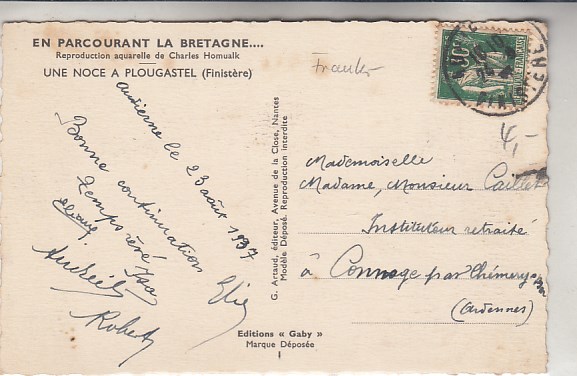 EN PARCOURANT LA BRETAGNE....
Reproduction aquarelle de Charles Homualk
UNE NOCE A PLOUGASTEL (Finistère)
Audierne le 23 août 1937
Bonne continuation
Robert
G. Artaud, éditeur, Avenue de la Close, Nantes
Modèle Déposé. Reproduction interdite
Editions « Gaby »
Marque Déposée
1
Mademoiselle
Madame, Monsieur Caillet
Instituteur retraité
à Connage par Chémery
(Ardennes)